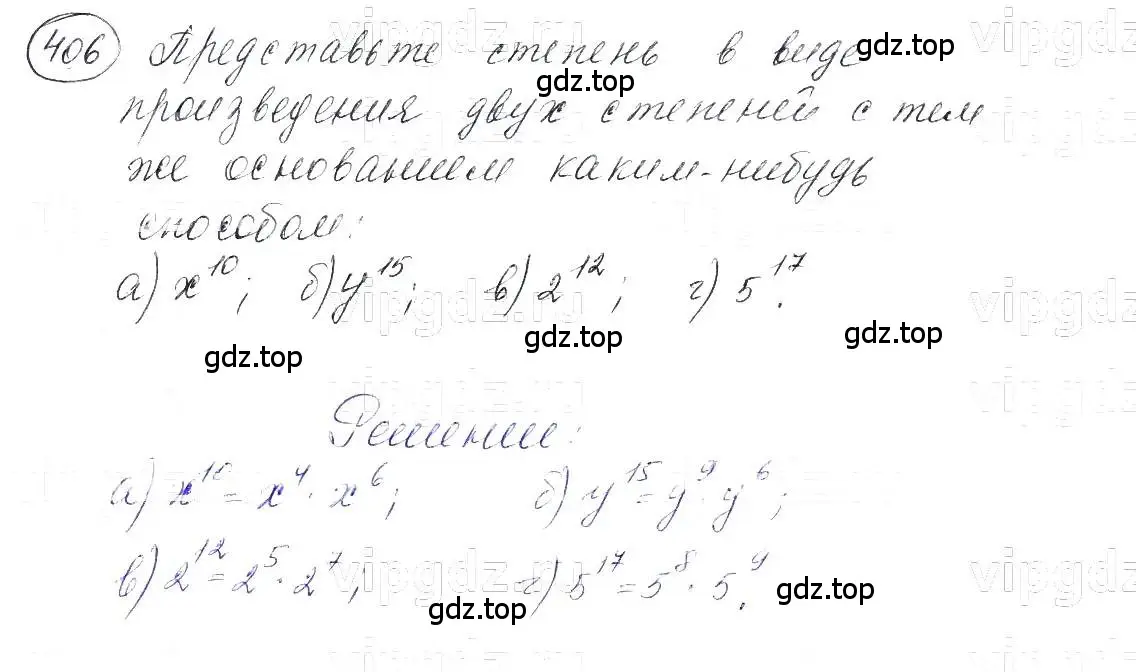 406 Представьте степень в виде
произведения двух степеней с тем
же основанием каким-нибудь
способом:
а) x^10; б) y^15; в) 2^12; г) 5^17.
Решение:
а) x^10 = x^4 · x^6; б) y^15 = y^9 · y^6;
в) 2^12 = 2^5 · 2^7; г) 5^17 = 5^8 · 5^9.
gdz.top
gdz.top
gdz.top
gdz.top
gdz.top
gdz.top
gdz.top
vipgdz.ru
vipgdz.ru
vipgdz.ru
vipgdz.ru